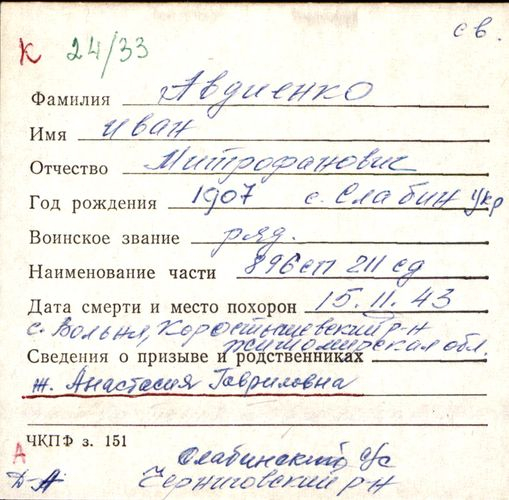 св.
К 24/33
Фамилия Авдиенко
Имя Иван
Отчество Митрофанович
Год рождения 1907 с. Слабин Укр
Воинское звание ряд.
Наименование части 896сп 211 сд
Дата смерти и место похорон 15.11.43
с. Вольня, Коростышевский р-н
Житомирская обл.
Сведения о призыве и родственниках
ж. Анастасия Гавриловна
ЧКПФ з. 151
А Слабинский с/с
Д-А Черниговский р-н